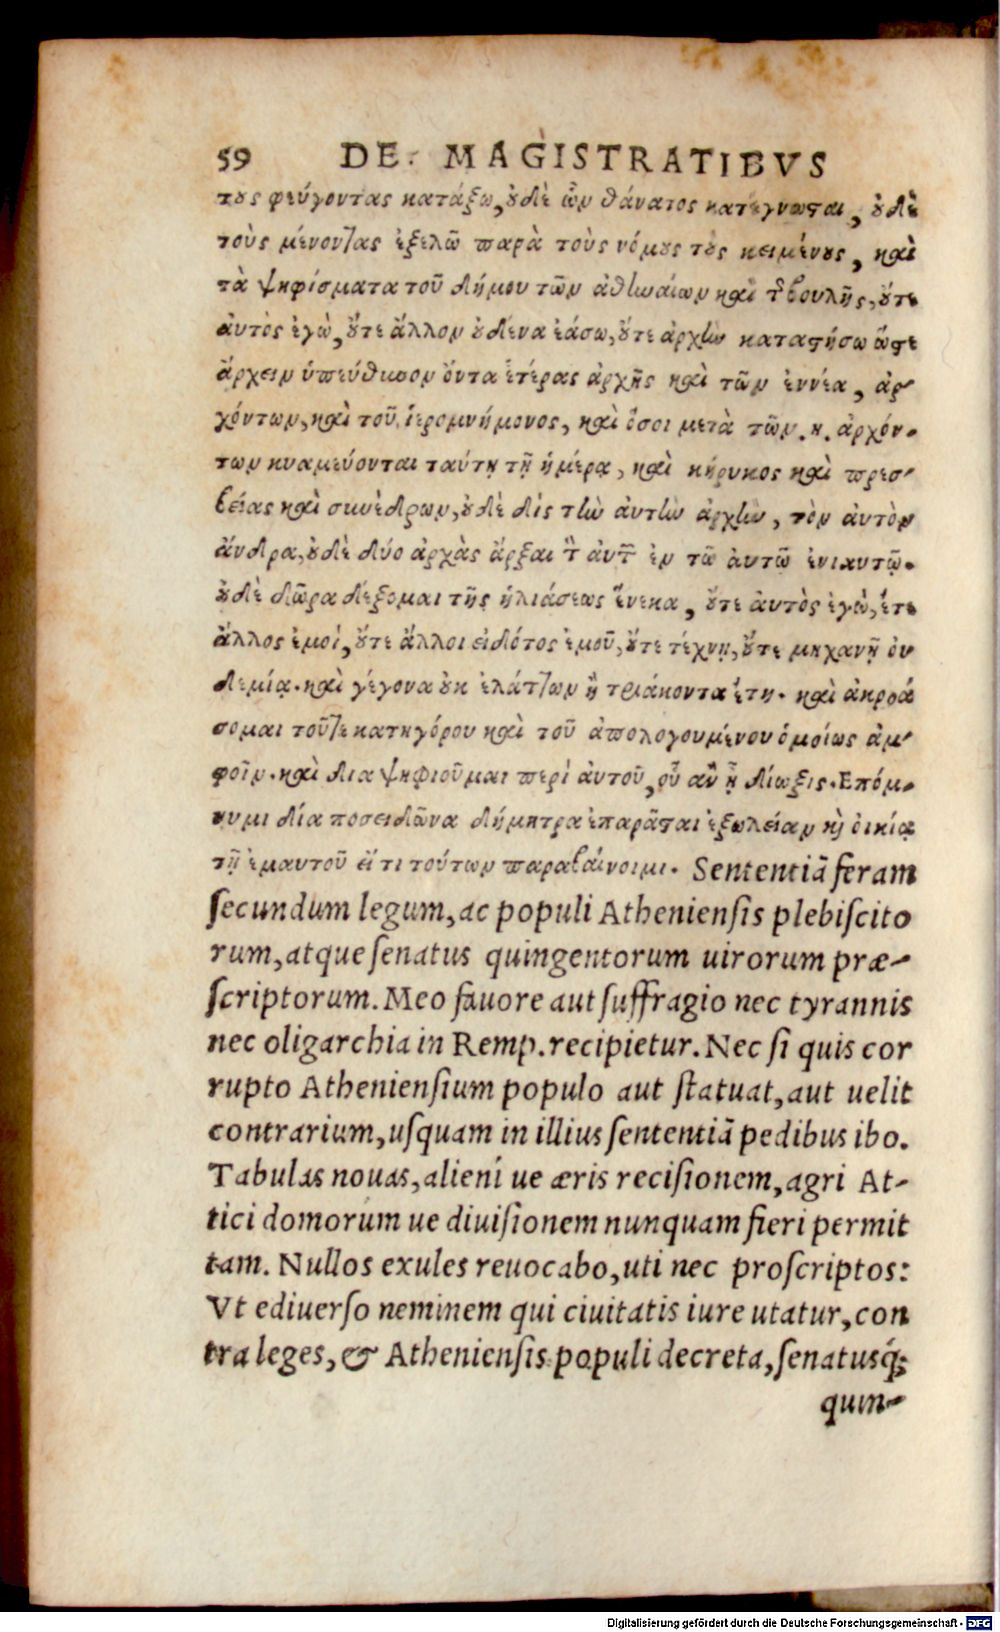 59 DE MAGISTRATIBVS
τȣς φεύγοντας κατάξω, ȣδὲ ὧν θάνατος κατέγνωϛαι, ȣδὲ
τοὺς μένοντας ἐξελῶ παρὰ τοὺς νόμȣς τȣς κειμένȣς, καὶ
τὰ ψηφίσματα τοῦ δήμου τῶν ἀθηναίων καὶ τ͂ βουλῆς, ȣ̓́τε
ἀυτὸς ἐγὼ, ȣ̓́τε ἄλλον ȣδένα ἐάσω, ȣ̓́τε ἀρχὴν καταϛήσω ὥϛε
ἄρχειν ὑπεύθυνον ὄντα ἑτέρας ἀρχῆς καὶ τῶν ἐννέα, ἀρ-
χόντων, καὶ τοῦ ἱερομνήμονος, καὶ ὅσοι μετὰ τῶν .η. ἀρχόν-
των κυαμεύονται ταύτῃ τῇ ἡμέρᾳ, καὶ κήρυκος καὶ πρεσ-
βείας καὶ συνέδρων, ȣδὲ δὶς τὴν ἀυτὴν ἀρχὴν, τὸν ἀυτὸν
ἄνδρα, ȣδὲ δύο ἀρχὰς ἄρξαι τ̀ ἀυτ̀ ἐν τῶ ἀυτῶ ἐνιαυτῷ.
ȣδὲ δῶρα δέξομαι τῆς ἡλιάσεως ἕνεκα, ȣ̓́τε ἀυτὸς ἐγὼ, ȣ̓́τε
ἄλλος ἐμοί, ȣ̓́τε ἄλλοι εἰδότος ἐμοῦ, ȣ̓́τε τέχνῃ, ȣ̓́τε μηχανῇ ȣ
δεμίᾳ. καὶ γέγονα ȣκ ἐλάττων ἢ τριάκοντα ἔτη. καὶ ἀκροά
σομαι τοῦτε κατηγόρου καὶ τοῦ ἀπολογουμένου ὁμοίως ἀμ-
φοῖν. καὶ διαψηφιοῦμαι περὶ ἀυτοῦ, οὗ ἂν ᾖ δίωξις. Επόμ-
νυμι δία ποσειδῶνα δήμητρα ἐπαρᾶϛαι ἐξωλείαν κὶ οἰκίᾳ
τῇ ἐμαυτοῦ εἴ τι τούτων παραβαίνοιμι. Sententiã feram
secundum legum, ac populi Atheniensis plebiscito
rum, atque senatus quingentorum uirorum præ-
scriptorum. Meo fauore aut suffragio nec tyrannis
nec oligarchia in Remp. recipietur. Nec si quis cor
rupto Atheniensium populo aut statuat, aut uelit
contrarium, usquam in illius sententiã pedibus ibo.
Tabulas nouas, alieni ue æris recisionem, agri At-
tici domorum ue diuisionem nunquam fieri permit
tam. Nullos exules reuocabo, uti nec proscriptos:
Vt ediuerso neminem qui ciuitatis iure utatur, con
tra leges, & Atheniensis populi decreta, senatusq́;
quin-
Digitalisierung gefördert durch die Deutsche Forschungsgemeinschaft - DFG